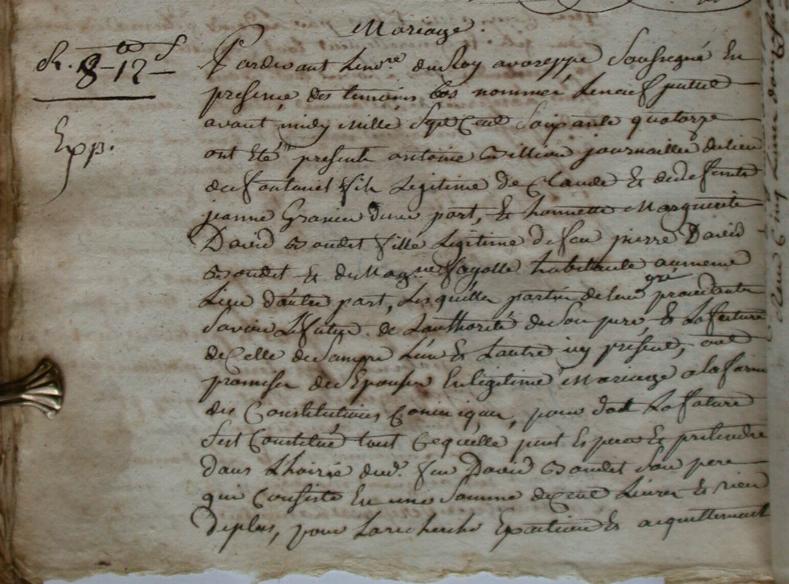 Mariage.
R. 8-12-
Exp.
Pardevant Le no.re du Roy a voreppe Soussigné En
presence des temoins bas nommés Le neuf juillet
avant midy Mille Sept Cent Soixante quatorze
ont Eté presents antoine journaillier du lieu
du fontanet fils Legitime de Claude Et de deffunte
jeanne Granier d'une part, Et honnette Marguerite
David Baudet fille Legitime de feu pierre David
Baudet Et de fayolle habitante au meme
Lieu d'autre part, Lesquelles parties de leur gré procedantes
Savoir Le futur de L'authorité de Son pere, Et La future
de Celle de Sa mere L'un Et L'autre icy present, ont
promis de Epouser En legitime Mariage a la forme
des Constitutions Canoniques, pour dot La future
S'est Constituée tout Ce qu'elle peut Esperer Et pretendre
dans L'hoirie dud. feu David Baudet Son pere
qui Consiste En une Somme de Cent Livres Et rien
de plus, pour La recherche Exaction Et acquittement